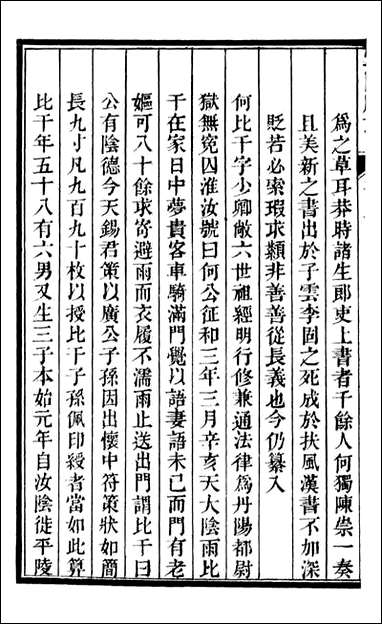 爲之草耳莽時諸生郎吏上書者千餘人何獨陳崇一奏
且美新之書出於子雲李固之死成於扶風漢書不加深
貶若必索瑕求類非善善從長義也今仍纂入
何比干字少卿敞六世祖經明行修兼通法律爲丹陽都尉
獄無寃囚淮汝號曰何公征和三年三月辛亥天大陰雨比
干在家日中夢貴客車騎滿門覺以語妻語未已而門有老
嫗可八十餘求寄避雨雨而衣履不濡雨止送出門謂比干曰
公有陰德今天錫君策以廣公子孫因出懷中符策狀如簡
長九寸凡九百九十枚以授比干子孫佩印綬者當如此算
比干年五十八有六男又生三子本始元年自汝陰徙平陵